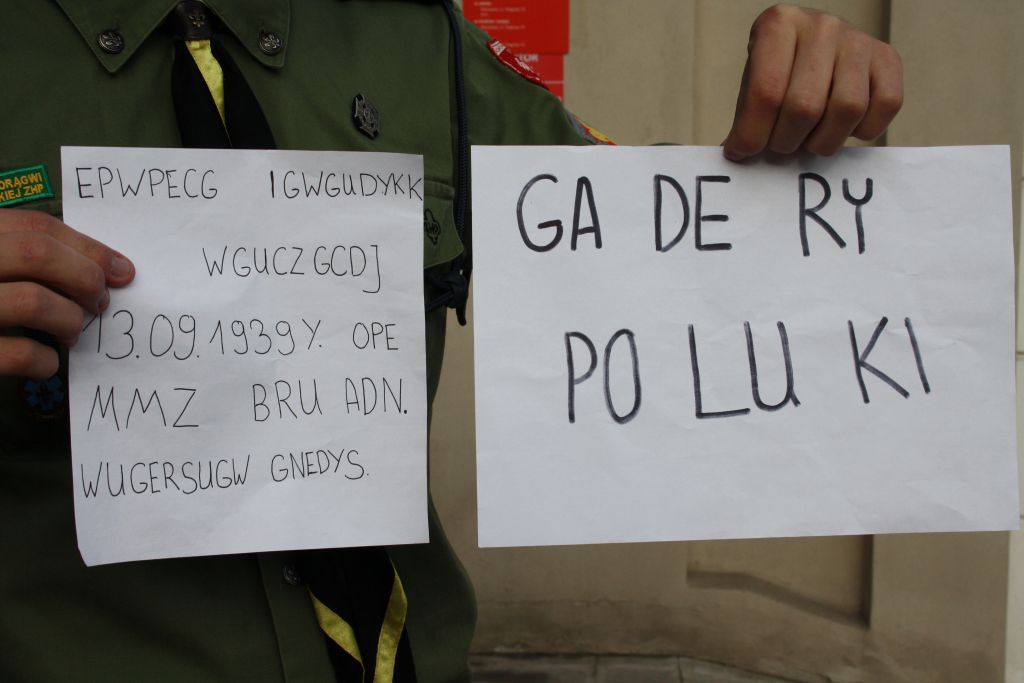 EPWPECG IGWGUDYKK
WGUCZGCDJ
13.09.1939Y. OPE
MMZ BRU ADN.
WUGERSUGW GNEDYS.
GA DE RY
PO LU KI
ORĄGWI
KIEJ ZHP